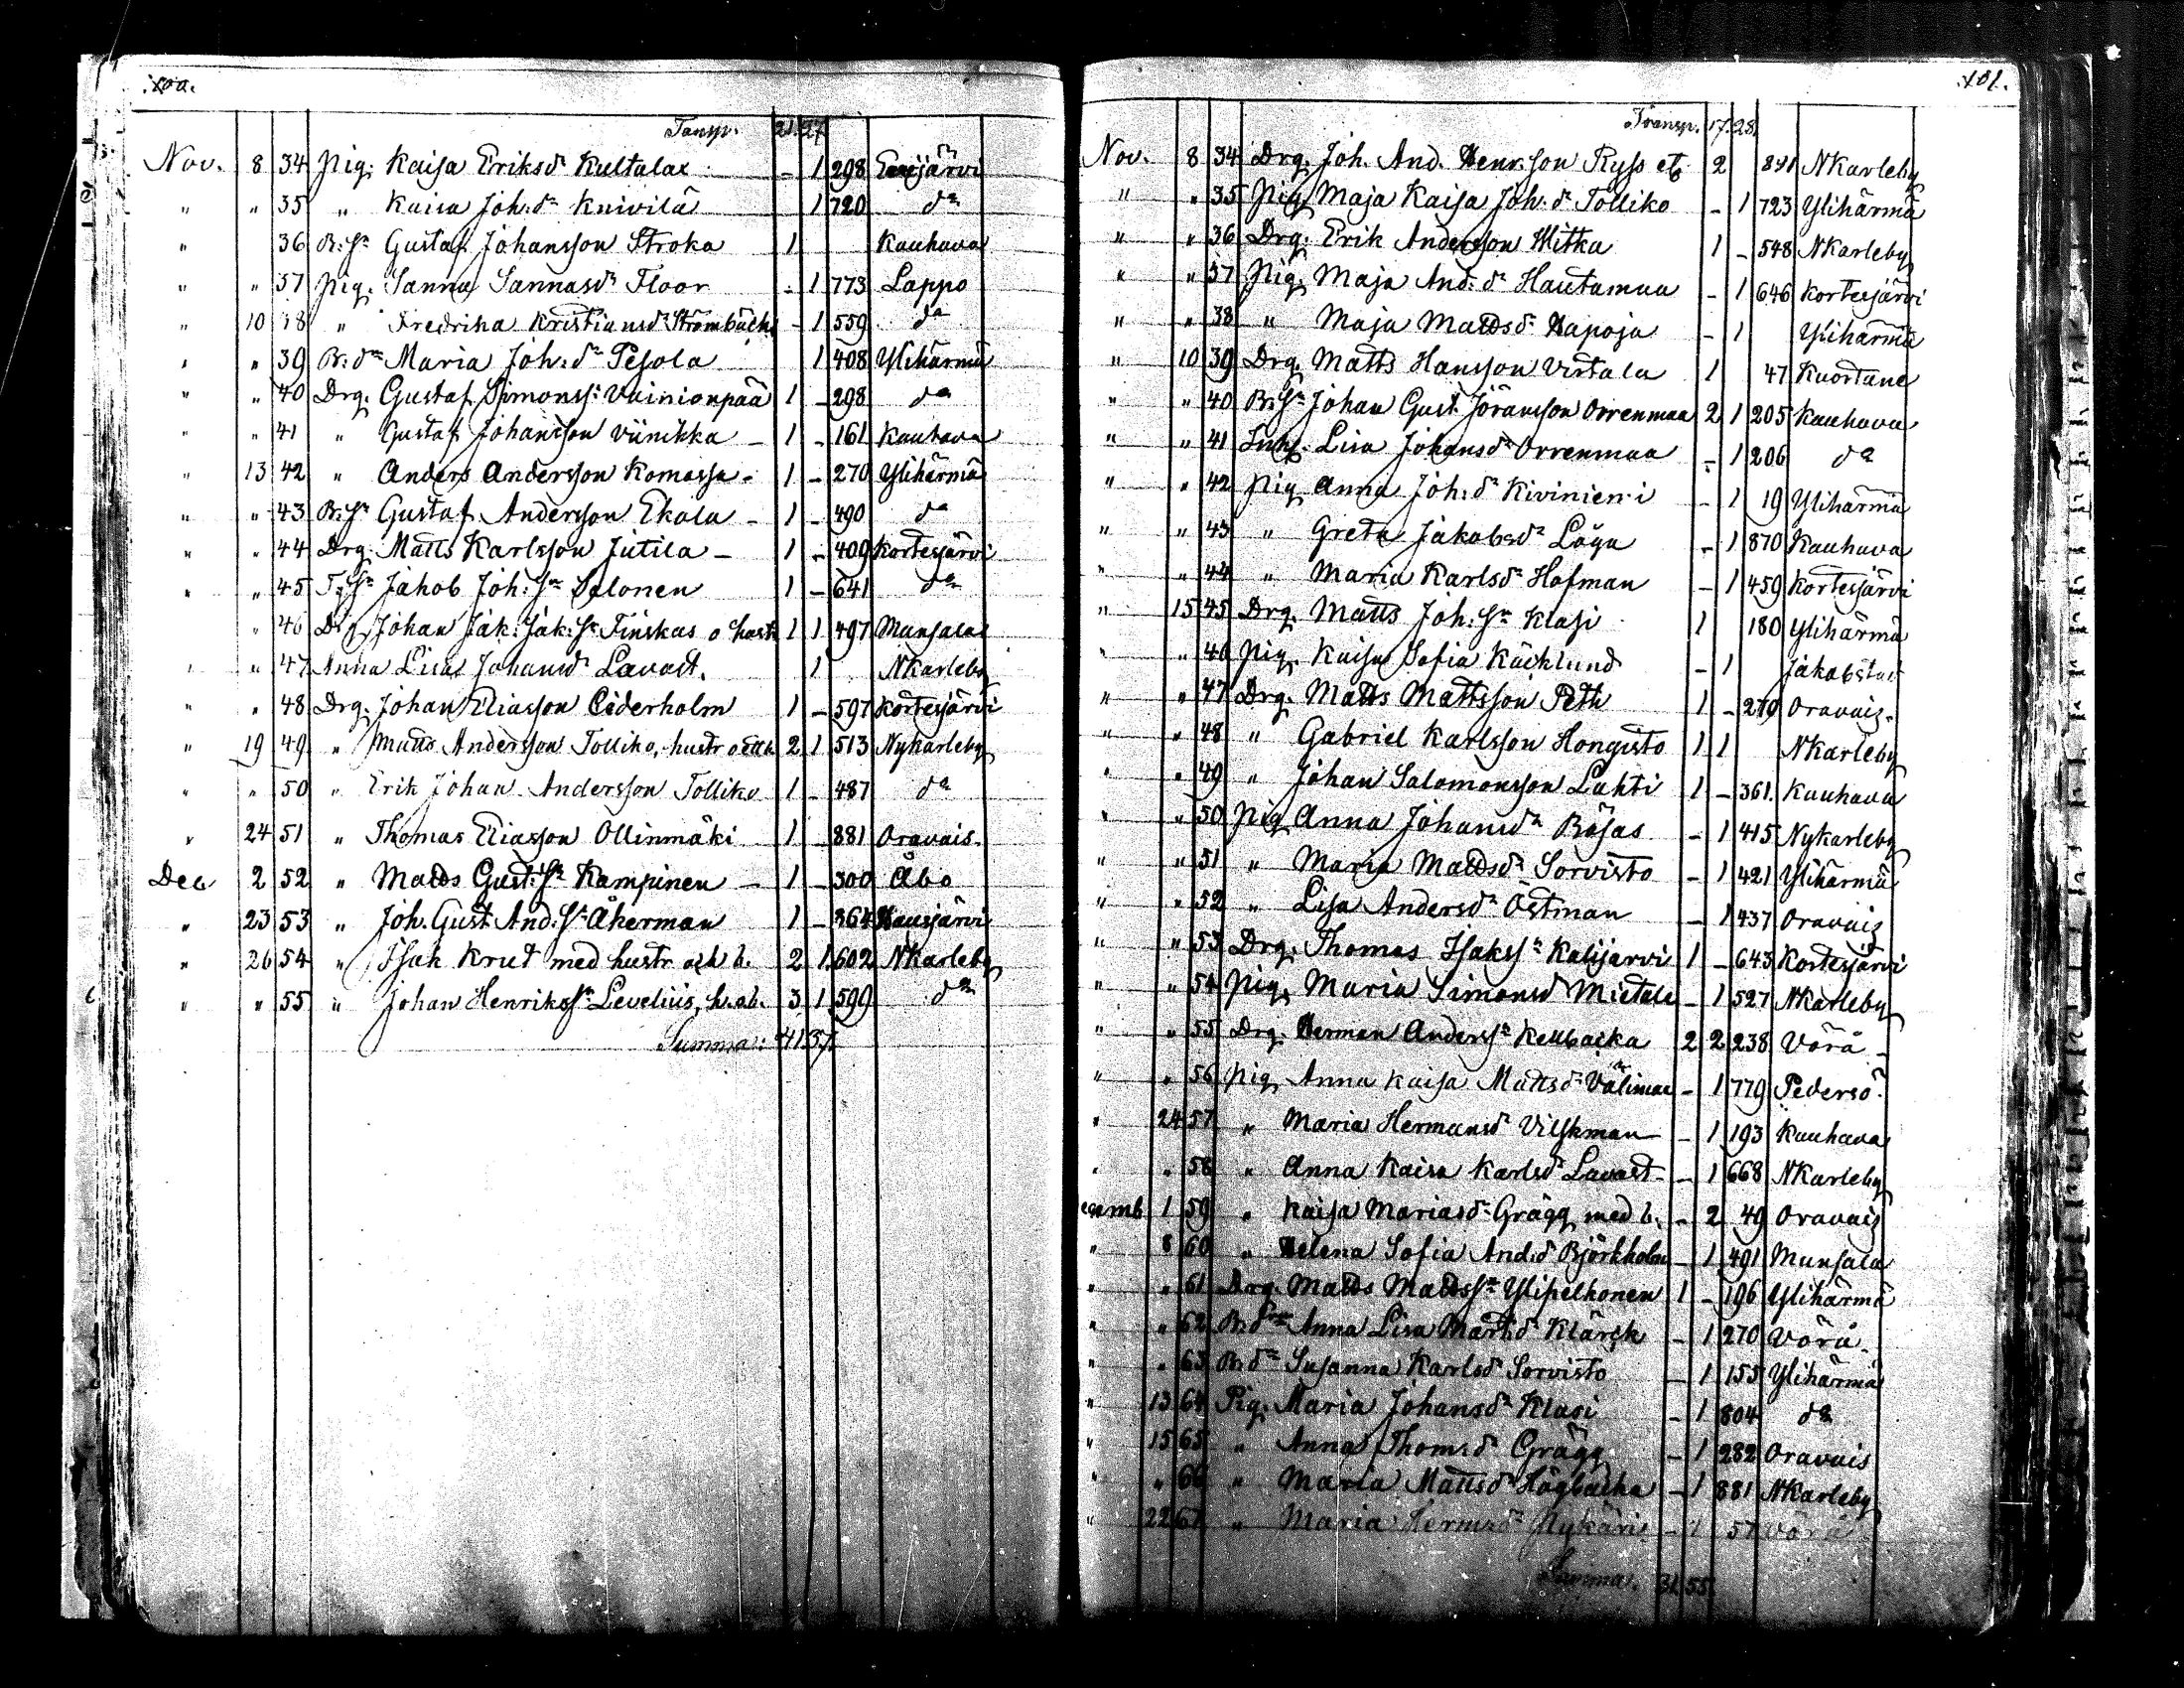 100.
Transp. 21. 27
Nov. 8 34 Pig. Kaisa Eriksdr Kultalax - 1 298 Evijärvi
" " 35 " Kaisa Joh:dr Knivilä 1 720 do
" 36 B:Sn Gustaf Johansson Stroka 1 Kauhava
" " 37 Pig. Sanna Sannasdr Floor - 1 773 Lappo
" 10 38 " Fredrika Kristiansdr Strömbäck - 1 559 do
" " 39 B:dr Maria Joh:dr Pesola 1 408 Ylihärmä
" " 40 Drg. Gustaf Simonss: Vainionpää 1 - 298 do
" " 41 " Gustaf Johansson Viinikka - 1 - 161 Kauhava
" 13 42 " Anders Andersson Komassa - 1 - 270 Ylihärmä
" " 43 B:Sn Gustaf Andersson Ekola - 1 - 490 do
" " 44 Drg. Matts Karlsson Jutila - 1 - 409 Kortesjärvi
" " 45 T:Sn Jakob Joh:Sn Salonen 1 - 641 do
" 46 Drg Johan Jak:Sn Finskas o hustr 1 1 497 Munsala
" " 47 Anna Lisa Johansdr Lavast. 1 NKarleby
" " 48 Drg. Johan Eliasson Ciderholm 1 - 597 Kortesjärvi
" 19 49 " Matts Andersson Tolliko, hustr o ett b. 2 1 513 Nykarleby
" " 50 " Erik Johan Andersson Tolliko 1 - 487 do
" 24 51 " Thomas Eliasson Ollinmäki 1 881 Oravais
Dec 2 52 " Matts Gust:Sn Kampinen - 1 - 300 Åbo
" 23 53 " Joh. Gust And:Sn Åkerman 1 - 364 Hausjärvi
" 26 54 " Isak Krut med hustr och b. 2 1 602 NKarleby
" " 55 " Johan Henrikssn Levelius, h. o b. 3 1 599 do
Summa: 41. 37.
101.
Transp. 17. 28.
Nov. 8 34 Drg. Joh. And. Henrsson Ryss 2 NKarleby
" " 35 Pig Maja Kaisa Joh:dr Tolliko - 1 723 Ylihärmä
" " 36 Drg. Erik Andersson Witka 1 - 548 NKarleby
" " 37 Pig. Maja And:dr Hautamaa - 1 646 Kortesjärvi
" " 38 " Maja Mattsdr Hapoja - 1 Ylihärmä
" 10 39 Drg. Matts Hansson Virtala 1 47 Kuortane
" " 40 B:Sn Johan Gust. Jöransson Orrenmaa 2 1 205 Kauhava
" " 41 Inh. Lisa Johansdr Orrenmaa - 1 206 do
" " 42 Pig Anna Joh:dr Kiviniemi - 1 19 Ylihärmä
" " 43 " Greta Jakobsdr - 1 870 Kauhava
" " 44 " Maria Karlsdr Hofman - 1 459 Kortesjärvi
" 15 45 Drg. Matts Joh:Sn Klasi 1 180 Ylihärmä
" " 46 Pig. Kaisa Sofia Käcklund - 1 Jakobstad
" " 47 Drg. Matts Mattsson Peth 1 - 279 Oravais
" " 48 " Gabriel Karlsson Hongisto 1 1 NKarleby
" " 49 " Johan Salomonsson Lahti 1 - 361. Kauhava
" " 50 Pig Anna Johansdr Råsas - 1 415 Nykarleby
" " 51 " Maria Mattsdr Sorvisto - 1 421 Ylihärmä
" " 52 " Lisa Andersdr Östman - 1 437 Oravais
" " 53 Drg. Thomas Isakssn Kalijärvi 1 - 643 Kortesjärvi
" " 54 Pig. Maria Simonsdr Mietala - 1 527 NKarleby
" " 55 Drg. Herman Anderssn Keubacka 2 2 238 Vörå
" " 56 Pig Anna Kaisa Mattsdr Välimaa - 1 779 Pedersö
" 24 57 " Maria Hermansdr Vilskman - 1 193 Kauhava
" " 58 " Anna Kaisa Karlsdr Lavast - 1 668 NKarleby
cemb 1 59 " Kaisa Mariasdr Grägg med b. - 2 49 Oravais
" 8 60 " Helena Sofia And:dr Björkholm - 1 491 Munsala
" " 61 Drg. Matts Mattssn Ylipelkonen 1 - 196 Ylihärmä
" " 62 B:dr Anna Lisa Martsdr Klärck - 1 270 Vörå
" " 63 B:dr Susanna Karlsdr Sorvisto - 1 155 Ylihärmä
" 13 64 Pig. Maria Johansdr Klasi - 1 804 do
" 15 65 " Anna Thoms:dr Grägg - 1 282 Oravais
" " 66 " Maria Mattsdr Högbacka - 1 881 NKarleby
" 22 67 " Maria Herms:dr Nykäri - 1 57 Vörå
Summa. 31. 55.